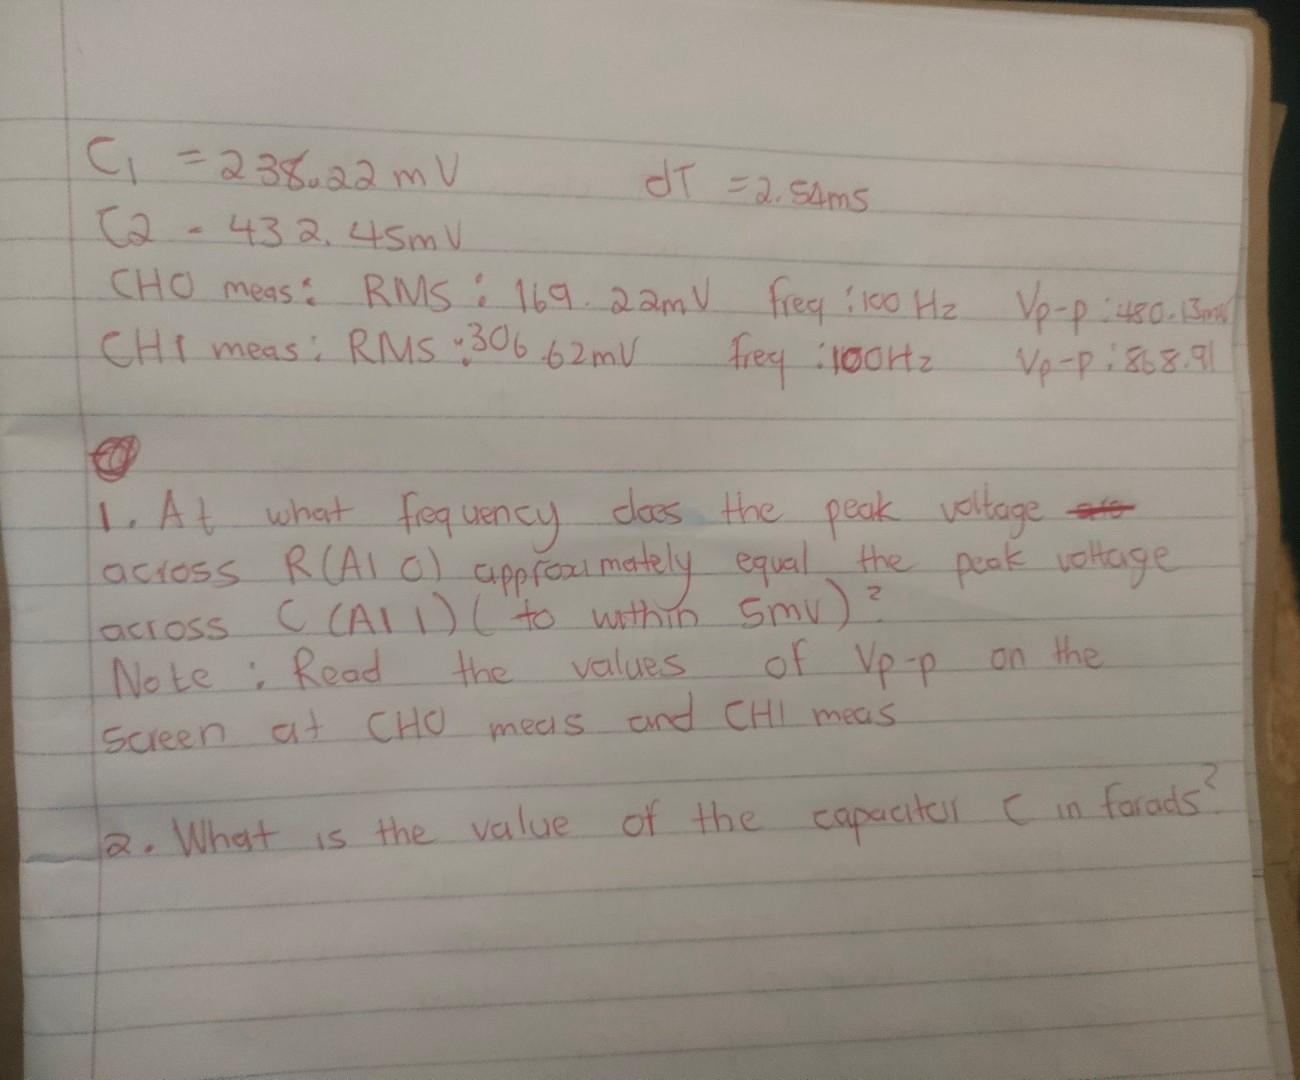 C1 = 238.22 mV dT = 2.54ms
C2 - 432.45mV
CHO meas: RMS: 169.22mV freq: 100 Hz Vp-p: 480.13mV
CH1 meas: RMS: 306.62mV freq: 100Hz Vp-p: 868.91
1. At what frequency does the peak voltage
across R(A1 0) approximately equal the peak voltage
across C (A1 1) (to within 5mV)?
Note: Read the values of Vp-p on the
screen at CHO meas and CH1 meas
2. What is the value of the capacitor C in farads?